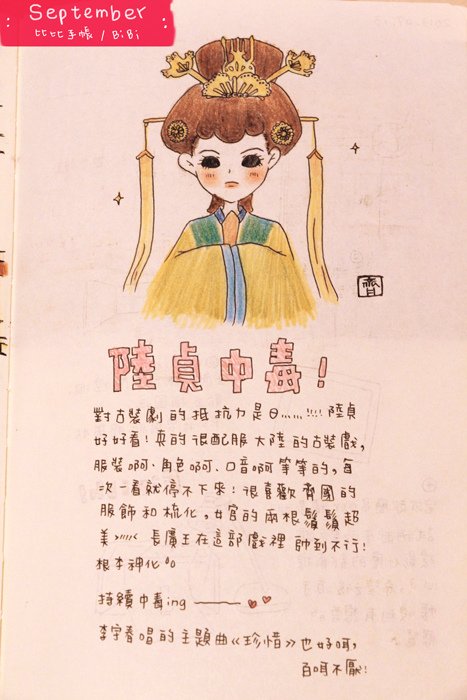 September
比比手帳 / BiBi
齊
陸貞中毒！
對古裝劇的抵抗力是日……!!!! 陸貞
好好看！真的很配服大陸的古裝戲，
服裝啊、角色啊、口音啊等等的，每
次一看就停不下來！很喜歡齊國的
服飾和梳化，女官的兩根鬚鬚超
美>///< 長廣王在這部戲裡帥到不行！
根本神化
持續中毒ing ——
李宇春唱的主題曲《珍惜》也好听，
百听不厭！